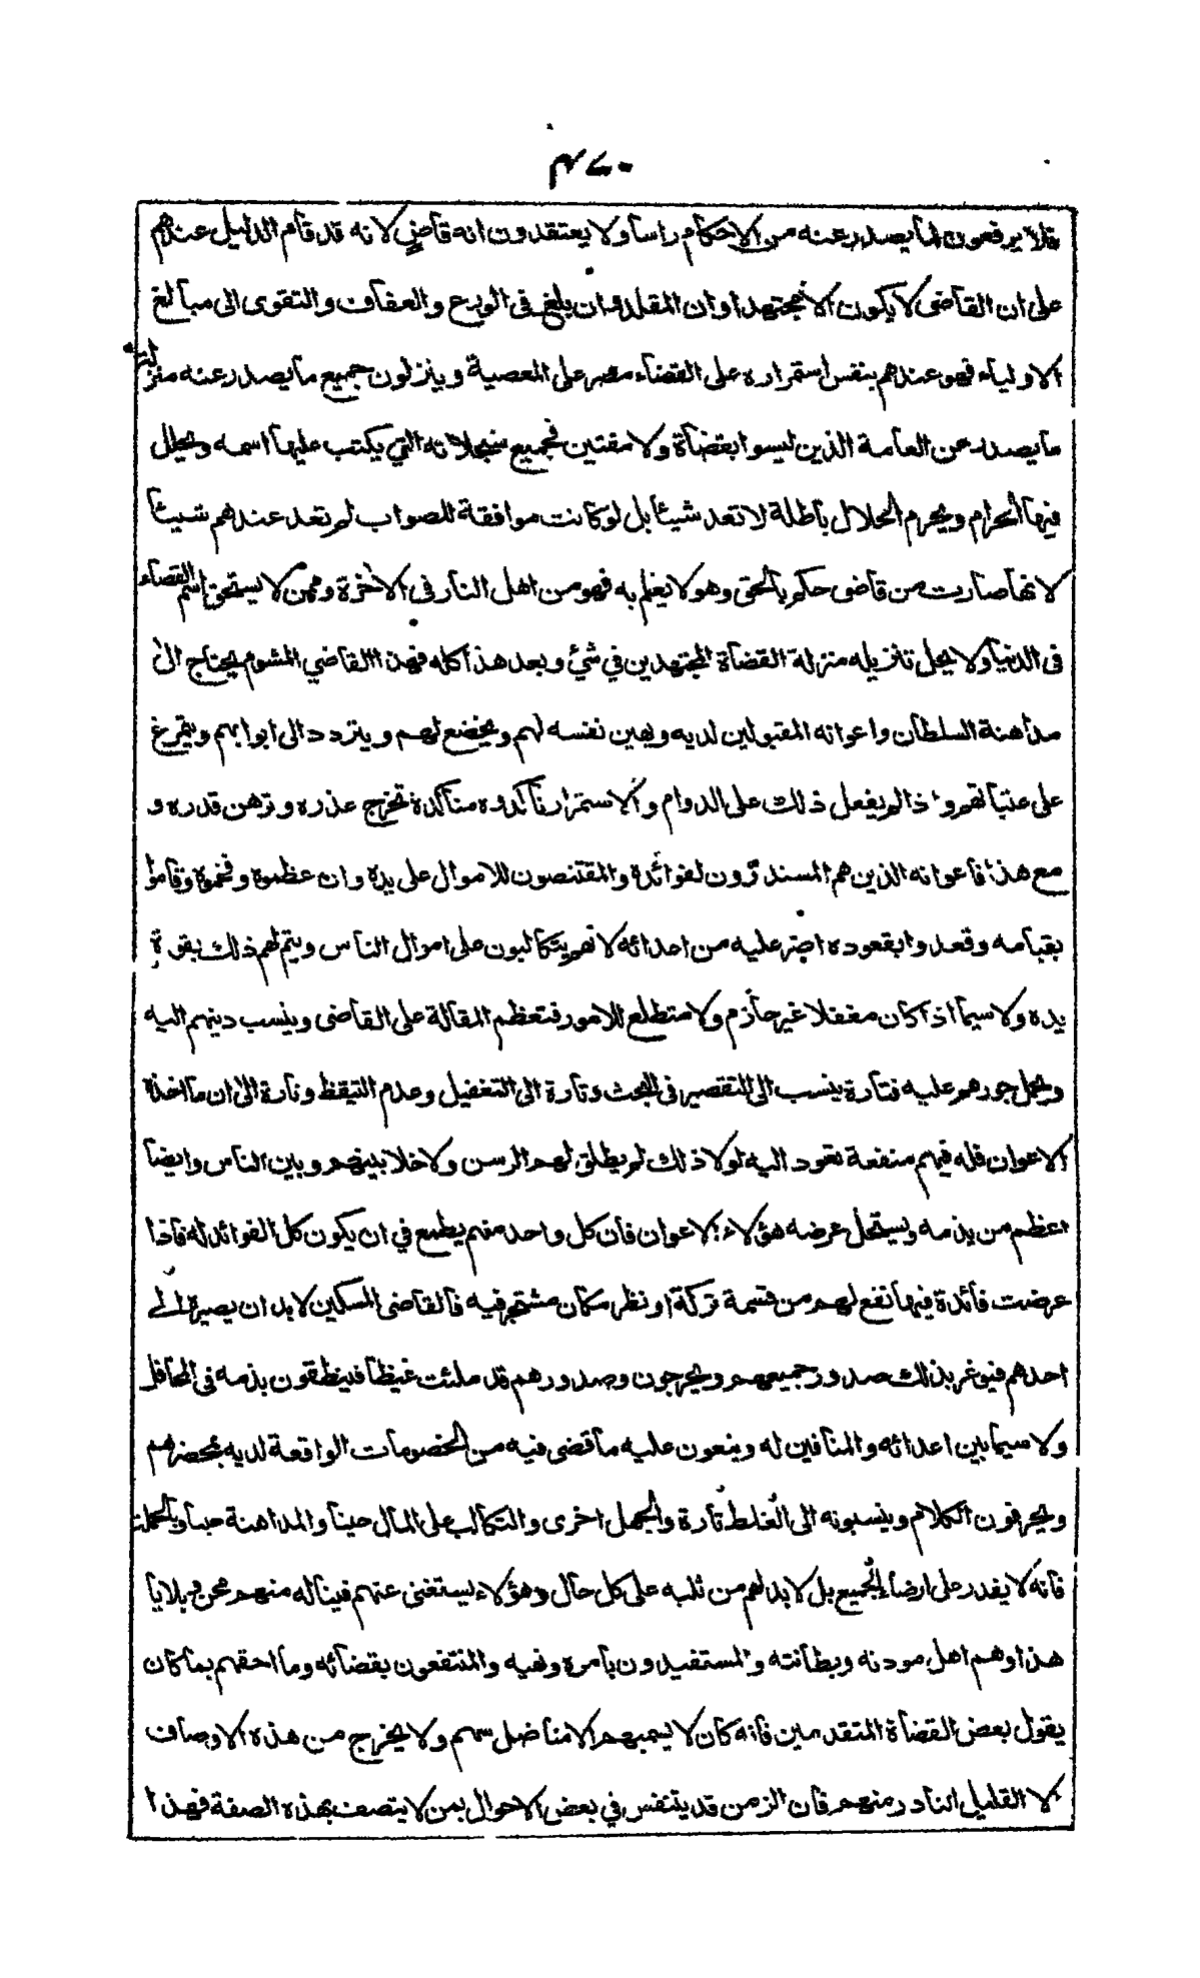 ٤٧٠
فلا يرفعون لما يصدر عنه من الاحكام راسا ولا يعتقدون انه قاض لانه قد قام الدليل عندهم
على ان القاضي لا يكون الا مجتهدا وان المقلد وان بلغ في الورع والعفاف والتقوى الى مبالغ
الاولياء فهو عندهم بنفس استمراره على القضاء مصر على المعصية وينزلون جميع ما يصدر عنه منزلة
ما يصدر عن العامة الذين ليسوا بقضاة ولا مفتين فجميع سجلاته التي يكتب عليها اسمه ويحلل
فيها الحرام ويحرم الحلال باطلة لا تعد شيئا بل لو كانت موافقة للصواب لم تعد عندهم شيئا
لانها صارت من قاض حكم بالحق وهو لا يعلم به فهو من اهل النار في الاخرة وممن لا يستحق اسم القضاء
في الدنيا ولا يحل تنزيله منزلة القضاة المجتهدين في شئ وبعد هذا كله فهذا القاضي المشوم يحتاج الى
مداهنة السلطان واعوانه المقبولين لديه ويهين نفسه لهم ويخضع لهم ويتردد الى ابوابهم ويتمرغ
على عتباتهم واذا لم يفعل ذلك على الدوام والاستمرار ناكدوه مناكدة تخرج عذره وتوهن قدره و
مع هذا فاعوانه الذين هم المستدرون لفوائده والمقتنصون للاموال على يده وان عظموه وفخموه وقاموا
بقيامه وقعدوا بقعوده اضر عليه من اعدائه لانهم يتكالبون على اموال الناس ويتم لهم ذلك بقوة
يده ولا سيما اذا كان مغفلا غير حازم ولا متطلع للامور فتعظم المقالة على القاضي وينسب دينهم اليه
ويحمل جورهم عليه فتارة ينسب الى التقصير في البحث وتارة الى التغفيل وعدم التيقظ وتارة الى ان ما اخذه
الاعوان فله فيهم منفعة تعود اليه لولا ذلك لم يطلق لهم الرسن ولا خلا بينهم وبين الناس وايضا
اعظم من يذمه ويستحل عرضه هؤلاء الاعوان فان كل واحد منهم يطمع في ان يكون كل الفوائد له فاذا
عرضت فائدة فيها نفع لهم من قسمة تركة او نظر مكان مشتجر فيه فالقاضي المسكين لا بد ان يصيره الى
احدهم فيوغر بذلك صدور جميعهم ويخرجون وصدورهم قد ملئت غيظا فينطقون بذمه في المحافل
ولا سيما بين اعدائه والمنافين له وينعون عليه ما قضى فيه من الخصومات الواقعة لديه بمحضرهم
ويحرفون الكلام وينسبونه الى الغلط تارة والجهل اخرى والتكالب على المال حينا والمداهنة حينا وبالجملة
فانه لا يقدر على ارضاء الجميع بل لا بد لهم من ثلبه على كل حال وهؤلاء يستغنى عنهم فيناله منهم محن وبلايا
هذا وهم اهل مودته وبطانته والمستفيدون بامره ونهيه والمنتفعون بقضائه وما احقهم بما كان
يقول بعض القضاة المتقدمين فانه كان لا يسميهم الا مناضل سهم ولا يخرج من هذه الاوصاف
الا القليل النادر منهم فان الزمن قد يتنفس في بعض الاحوال بمن لا يتصف بهذه الصفة فهذا